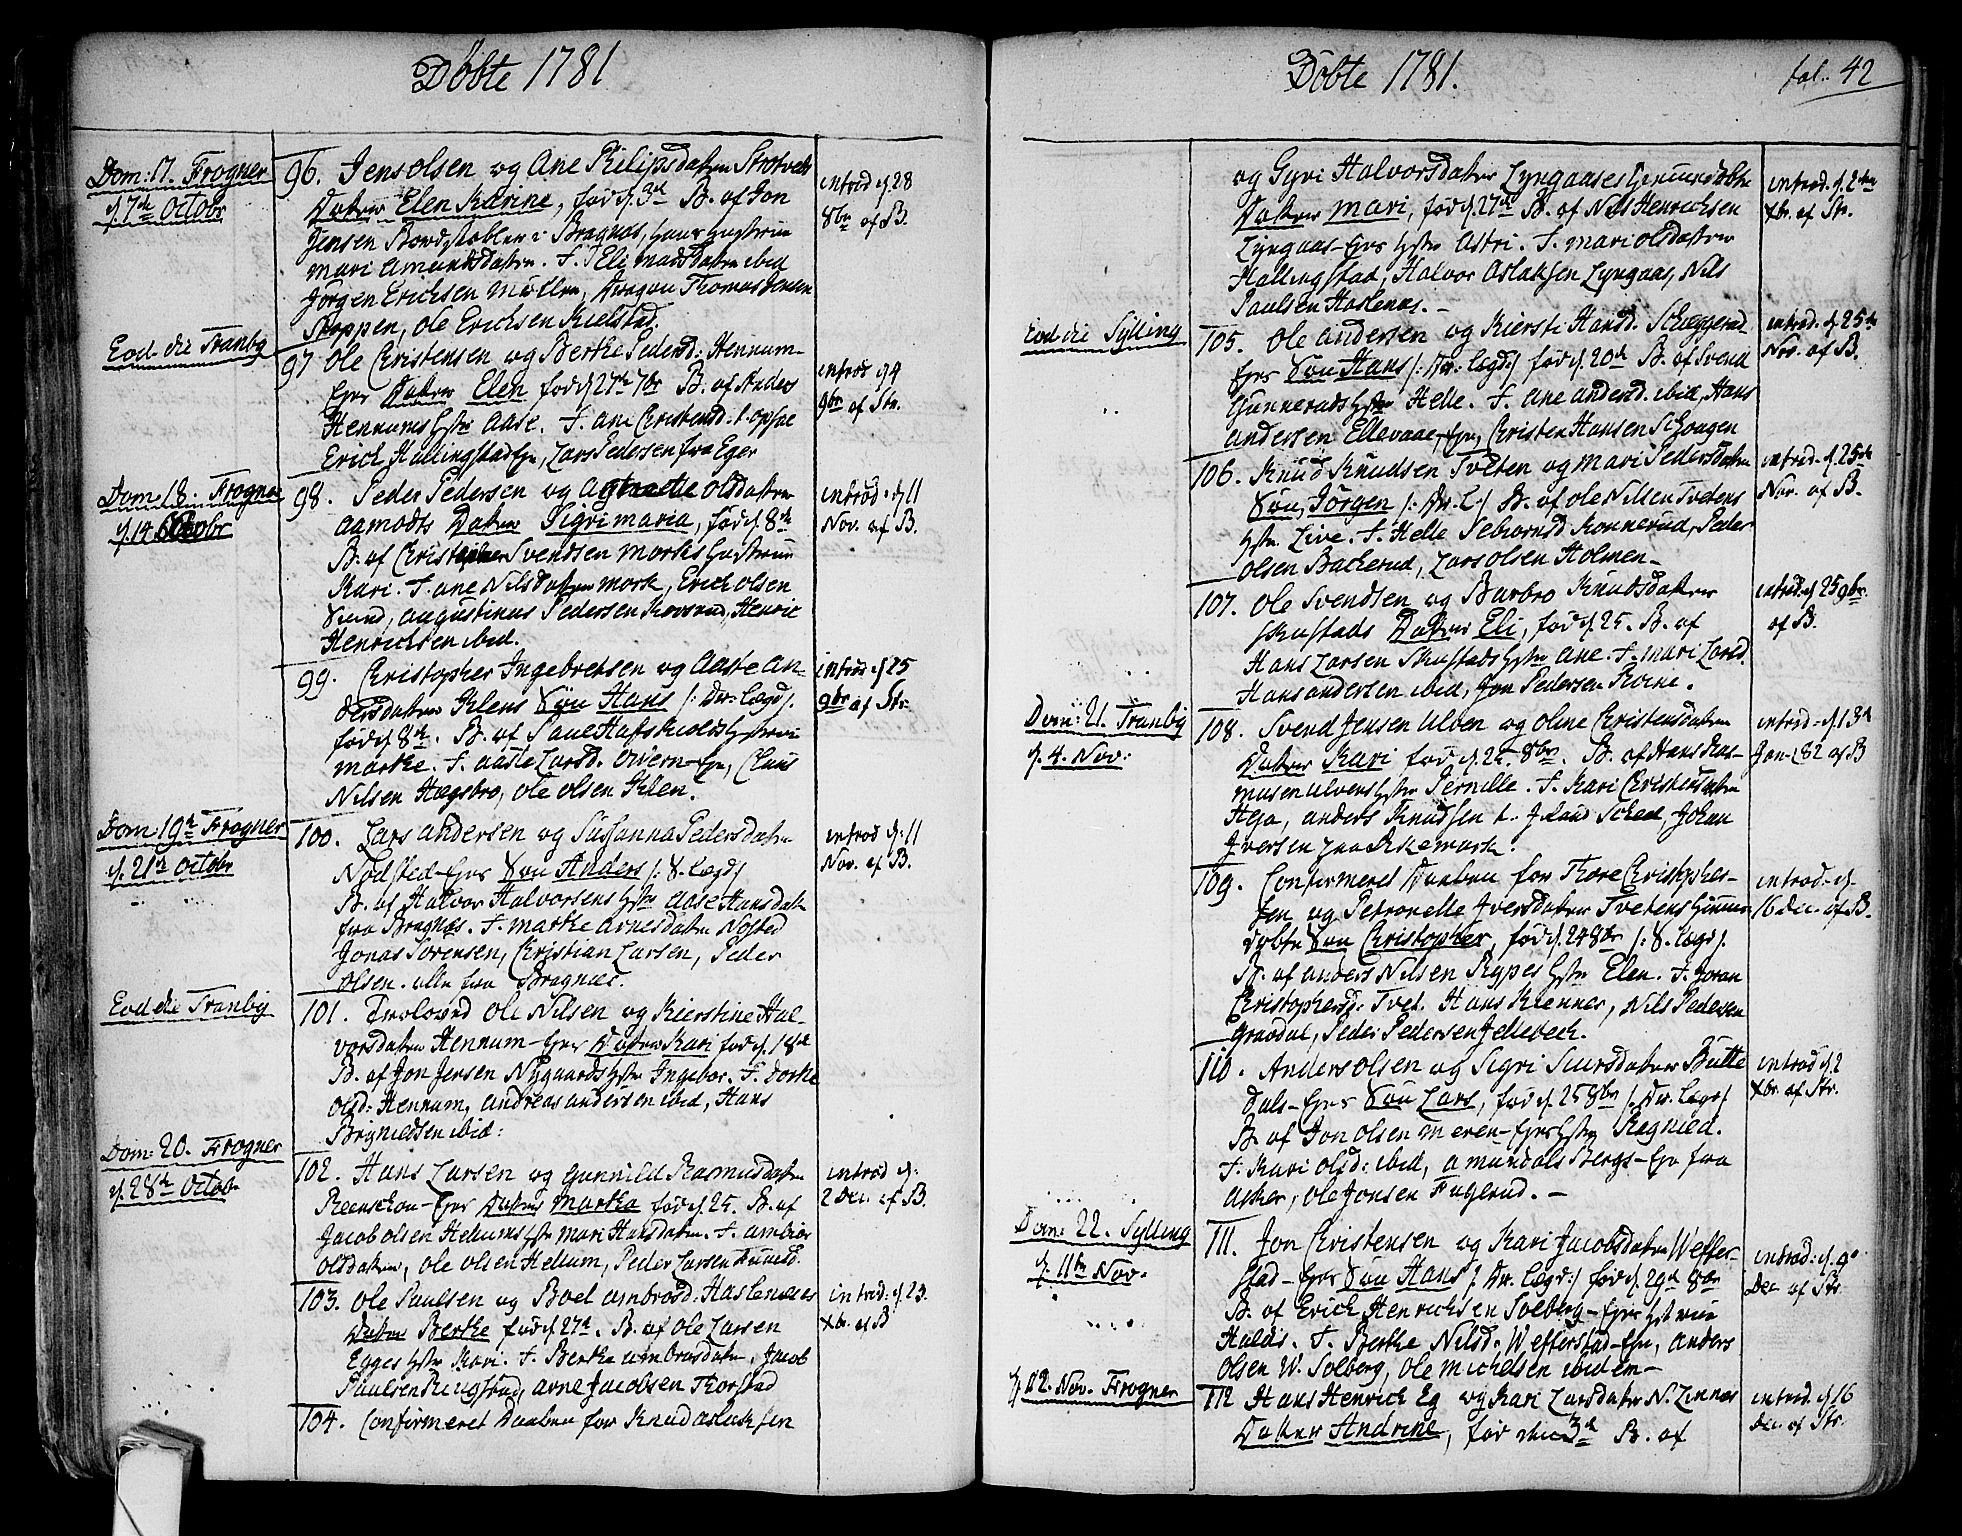 Døbte 1781
Dom: 17. Frogner
d. 7de Octobr
96. Jens Olsen og Ane Philipsdatter Stostvets
Datter Elen Karine, fød d. 3d B. af Jon
Jensen Bordstabler i Bragnæs, hans Hustrue
Mari Amundsdatter. F. Eli Mansdatter ibid
Jørgen Erichsen Møller, Dragon Thomas Jensen
Stoppen, Ole Erichsen Kielstad.
introd d. 28
8br af B.
Eod die Tranby
97 Ole Christensen og Berthe Pedersd: Hennum-
Ejer Datter Elen fød d. 27de 7br B. af Anders
Hennums Hstr Aase. F. Ane Christensd. t. opsae
Erich Hallingstad Eje, Lars Pedersen fra Eger
introd d 4
9br af Str.
Dom: 18. Frogner
d. 14 Octobr
98. Peder Pedersen og Olsdatter
Aamodts Datter Sigri Maria, fød d. 8de
B. af Christopher Svendsen Morks Hustrue
Kari. F. Ane Nilsdatter Mork, Erich Olsen
Sund, Augustinus Pedersen Kovsrud, Henric
Henrichsen ibid.
introd: d 11
Nov. af B.
99. Christopher Ingebretsen og Aaste An-
dersdatter Iklens Søn Hans /: Dr: Lægd/.
fød d. 8de. B. af Poul Hafskiolds Hustrue
Marthe. F. Aaste Larsd. Oivern-Eje, Claus
Nilsen Hægsbro, Ole Olsen Iklen.
introd: d 25
9br af Str.
Dom: 19de Frogner
d. 21de Octobr
100. Lars Andersen og Susanna Pedersdatter
Nødsted-Ejes Søn Anders /: 8. Lægd/
B. af Halvor Halvorsens Hstr Aase Hansdatter
fra Bragnæs. F. Marthe Arnesdatter Nøsted
Jonas Sørensen, Christian Larsen, Peder
Olsen. alle fra Bragnæs.
introd d: 11
Nov. af B.
Eod die Tranby
101. Troloved Ole Nilsen og Kierstine Hal-
vorsdatter Hennum-Ejes Datter Kari fød d. 18de
B. af Jon Jensen Nygaards Hstr Ingebor. F. Dorthe
Olsd: Hennum, Andreas Andersen ibid, Hans
Brynildsen ibid:
Dom: 20. Frogner
d. 28de Octob.
102. Hans Larsen og Gunnild Rasmusdatter
Reenskou-Ejes Datter Martha fød d. 25. B. af
Jacob Olsen Hellums Hstr Mari Hansdatter. F. Ambior
Olsdatter, Ole Olsen Hellum, Peder Larsen
introd d:
2 Dec. af B.
103. Ole Paulsen og Boel Ambrosd: Haslenæses
Datter Berthe fød d. 27de. B. af Ole Larsen
Egges Hstr Kari. F. Berthe Ambrosdatter, Jacob
Paulsen Ringstad, Arne Jacobsen Thorstad
introd: d. 23.
Xbr. af B
104. Confirmeret Daaben for Knud Aslachsen
Døbte 1781.
fol: 42
og Gyri Halvorsdatter Lyngaases Hiemmedøbte
Datter Mari, fød d. 27de B. af Nils Henrichsen
Lyngaas-Ejes Hstr Astri. F. Mari Olsdatter
Hallingstad, Halvor Aslaksen Lyngaas, Nils
Paulsen Haslenæs.-
introd. d. 2den
Xbr. af Str.
Eod die Sylling
105. Ole Andersen og Kiersti Hansd. Skeggerud
Ejes Søn Hans /: Dr: Lægd:/ fød d. 20de B. af Svend
Gunneruds Hstr Helle. F. Ane Andersd. ibid, Hans
Andersen Ellevaae-Eje, Christen Hansen Schougen
introd. d 25de
Nov. af B.
106. Knud Knudsen Tveten og Mari Pedersdatters
Søn, Jørgen /: Dr. L:/ B. af Ole Nilsen Tvetens
Hstr. Live. F. Helle Tebiørnsd Konnerud, Peder
Olsen Bacherud, Lars Olsen Holmen-
introd. d. 25de
Nov. af B.
107. Ole Svendsen og Barbro Knudsdatter
Skustads Datter Eli, fød d. 25. B. af
Hans Larsen Skustads Hstr Ane. F. Mari Larsd.
Hans Andersen ibid, Jon Pedersen Roine.
introd. d 25 9br
af B.
Dom: 21. Tranby
d. 4. Nov:
108. Svend Jensen Ulven og Oline Christensdatter
Datter Kari fød d. 25. 8br. B. af Hans Ras-
musen Ulvens Hstr Pernille. F. Kari Christensdatter
Heja, Anders Knudsen t. Skad, Johan
Iversen paa Askemark.
introd. d. 13de
Jan. 82 af B
109. Confirmeret Daaben for Thore Christopher-
sen og Petronelle Iversdatter Tvetens Hiemme-
døbte Søn Christopher, fød d. 24 8br /: 8. Lægd/.
B. af Anders Nilsen Rypes Hstr Elen. F. Joran
Christophersd: Tvet. Hans Kienner, Nils Pedersen
Gravdal, Peder Pedersen Jellebech.
introd. d.
16 Dec. af B.
110. Anders Olsen og Sigri Siursdatter Butte
dals-Ejes Søn Lars, fød d. 25 8br /: Dr. Lægd/
B. af Jon Olsen Meren-Ejes Hstr Ragnild.
F. Kari Olsd: ibid, Amund Bergs-Eje fra
Asker, Ole Jonsen Fuglerud.-
introd d. 2
Xbr. af Str.
Dom: 22. Sylling
d. 11te Nov.
111. Jon Christensen og Kari Jacobsdatter Weffer-
stad-Ejes Søn Hans /: Dr. Lægd:/ fød d. 29de 8br
B. af Erich Henrichsen Solberg-Ejes Hstrue
Haldis. F. Berthe Nilsd: Wefferstad-Eje, Anders
Olsen W. Solberg, Ole Michelsen ibidem-
introd: d. 9
Dec. af Str.
d. 12. Nov. Frogner
112 Hans Henrich Eg og Kari Larsdatter N. Linnes
Datter Andrine, fød den 3de B. af
introd. d 16
Dec. af Str.